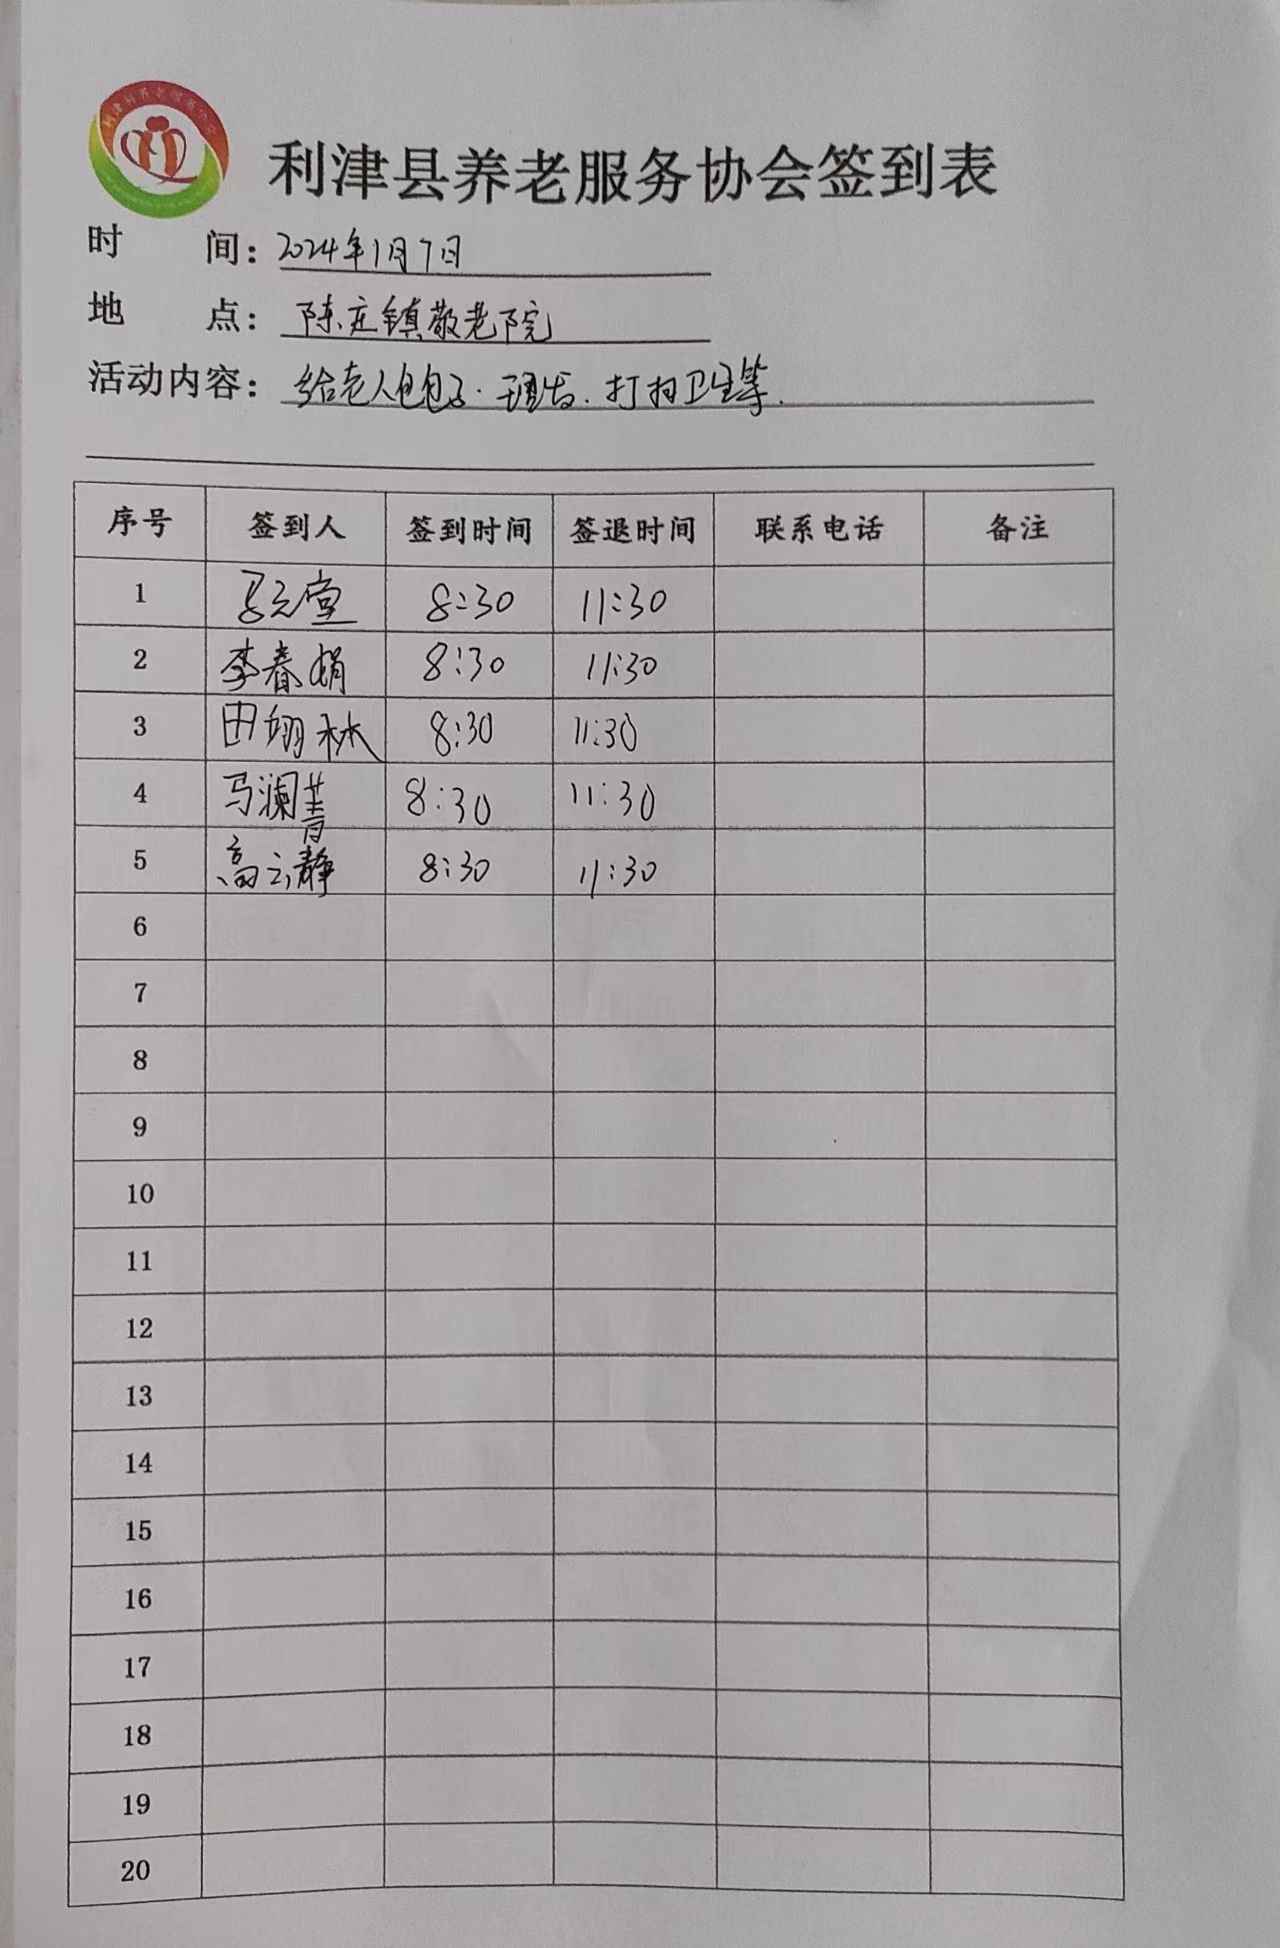 利津县养老服务协会签到表
时 间：2024年1月7日
地 点：陈庄镇敬老院
活动内容：给老人包包子.理发.打扫卫生等.
序号 签到人 签到时间 签退时间 联系电话 备注
1 8:30 11:30
2 李春娟 8:30 11:30
3 田翊林 8:30 11:30
4 马澜菁 8:30 11:30
5 高云静 8:30 11:30
6
7
8
9
10
11
12
13
14
15
16
17
18
19
20